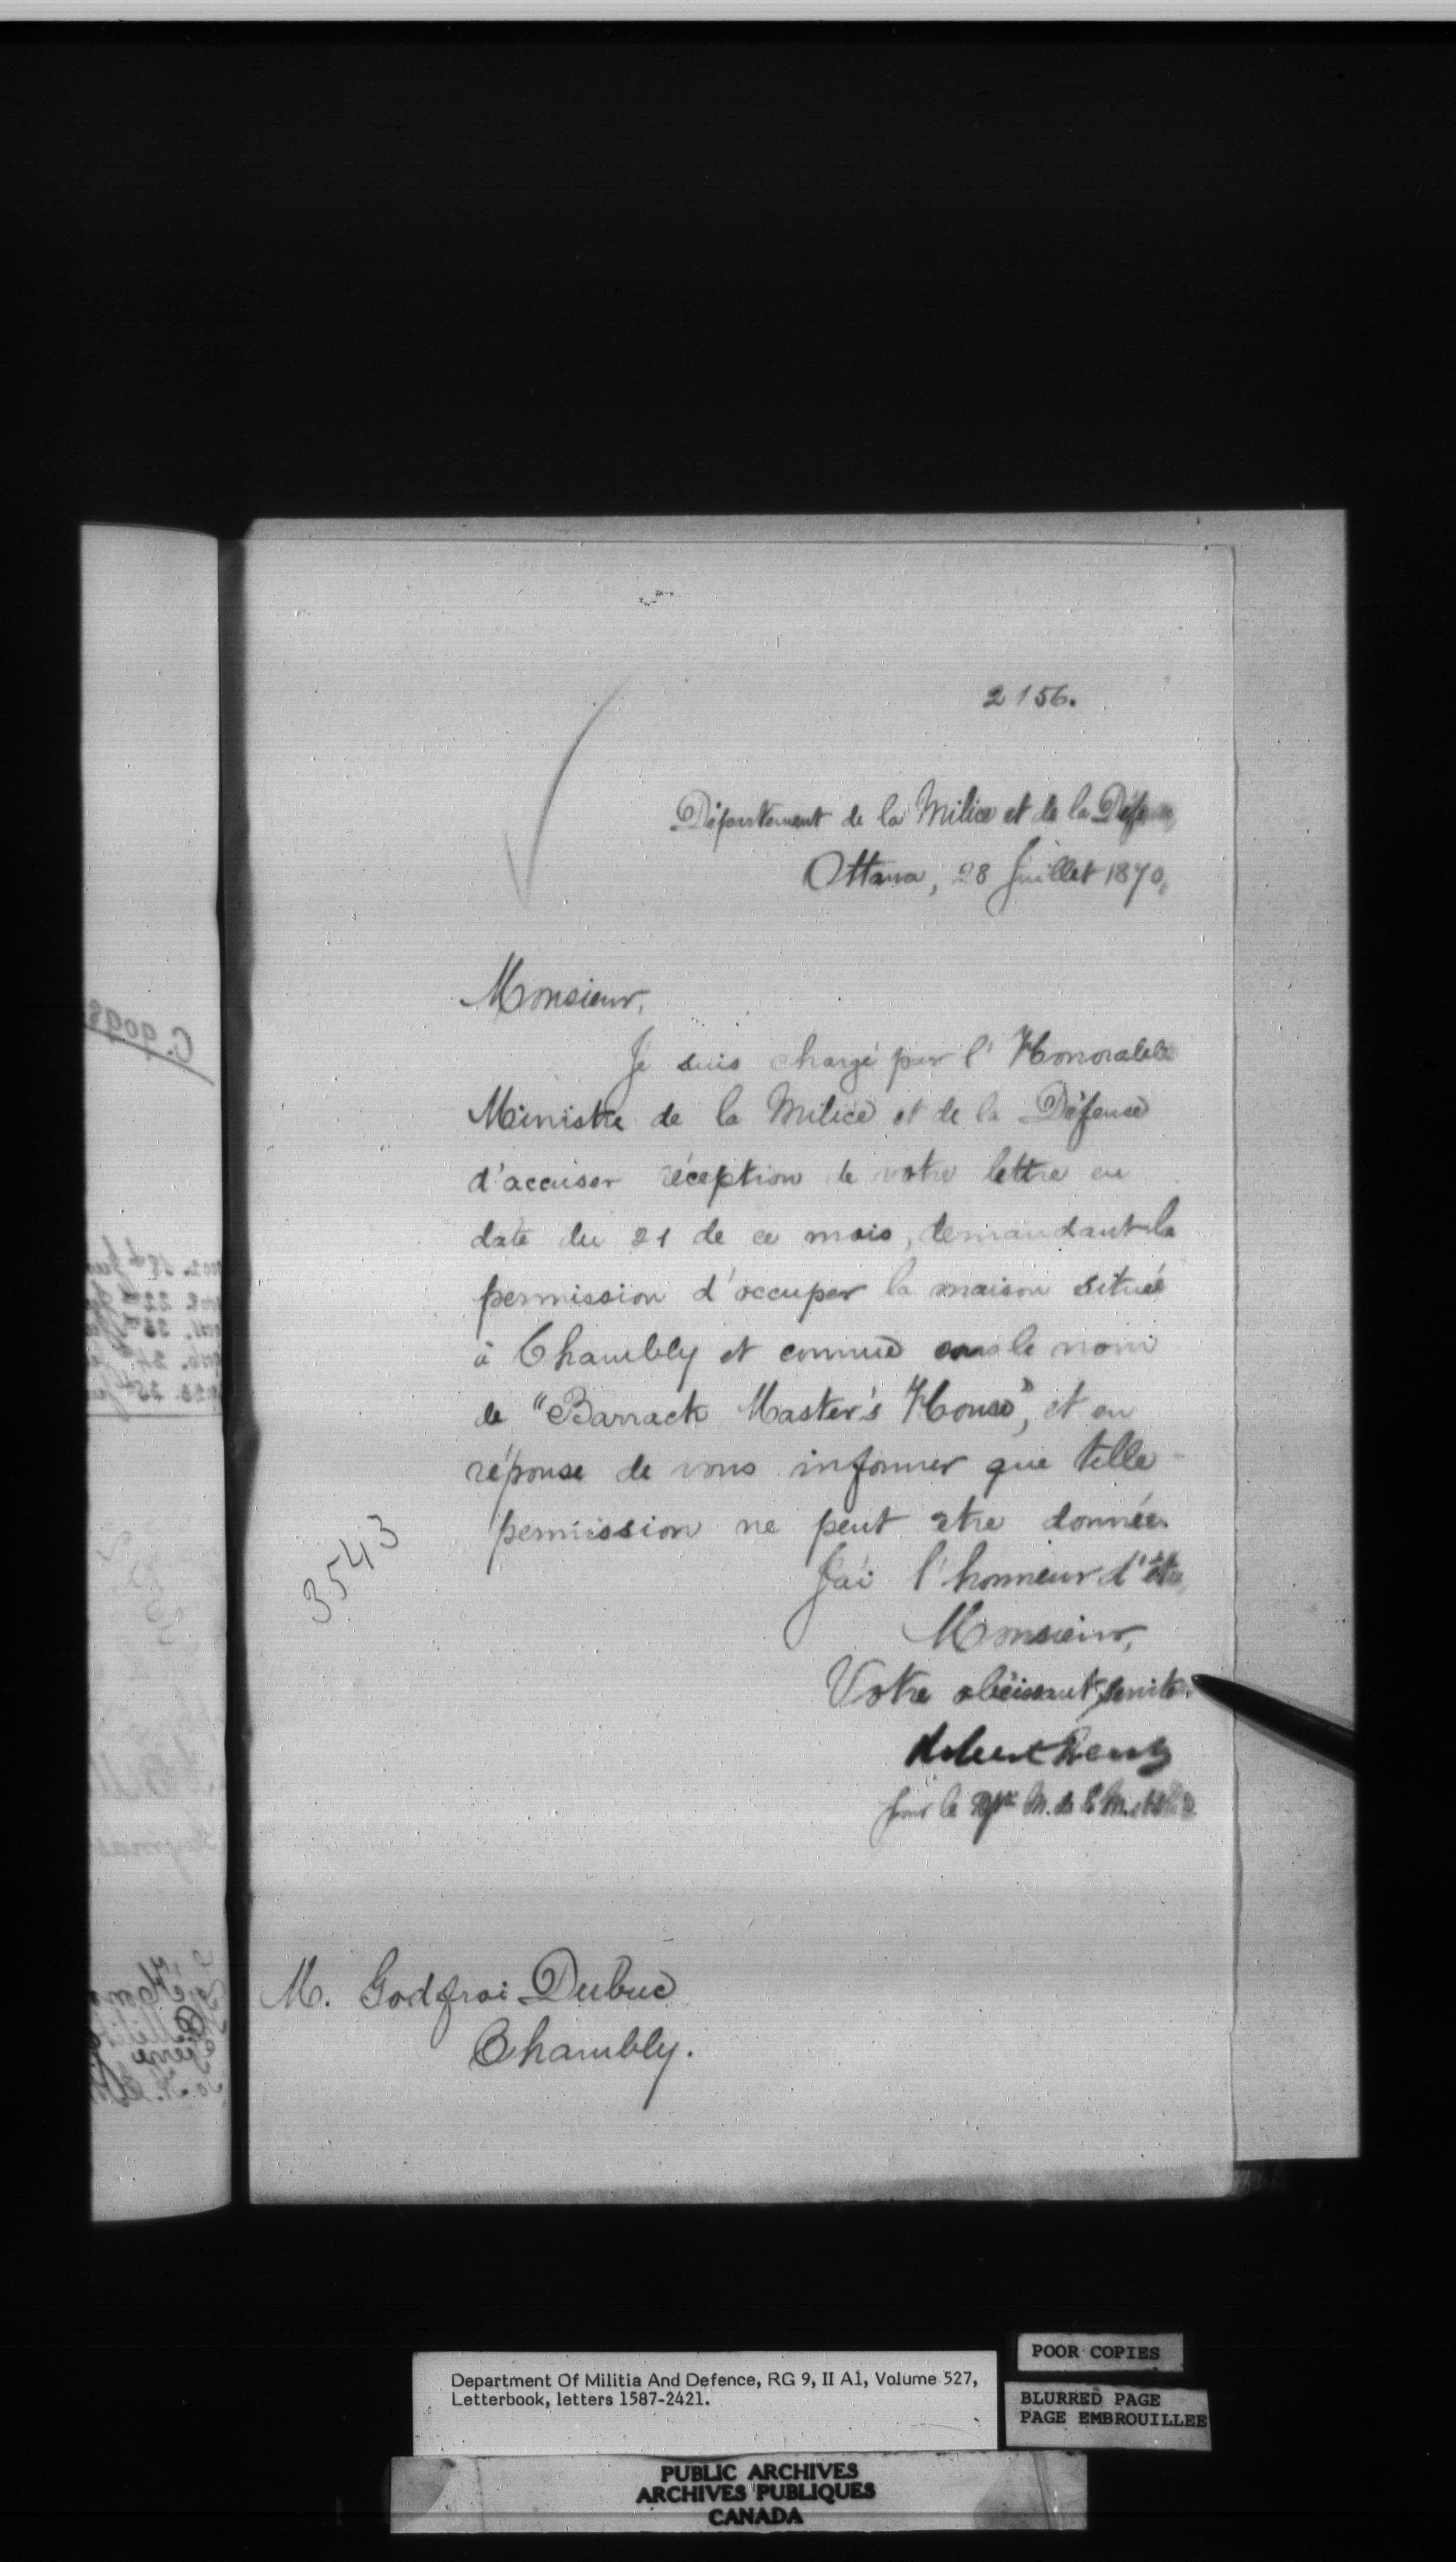 2156.
Département de la Milice et de la Défense
Ottawa, 28 Juillet 1870,
Monsieur,
Je suis chargé par l'Honorable
Ministre de la Milice et de la Défense
d'accuser réception de votre lettre en
date du 21 de ce mois, demandant la
permission d'occuper la maison située
à Chambly et connue sous le nom
de "Barrack Master's House", et en
réponse de vous informer que telle
permission ne peut etre donnée.
3543
J'ai l'honneur d'être
Monsieur,
Votre obéissant servite.
pour le M. de
M. Godfroi Dubuc
Chambly.
Department Of Militia And Defence, RG 9, II A1, Volume 527,
Letterbook, letters 1587-2421.
POOR COPIES
BLURRED PAGE
PAGE EMBROUILLEE
PUBLIC ARCHIVES
ARCHIVES PUBLIQUES
CANADA